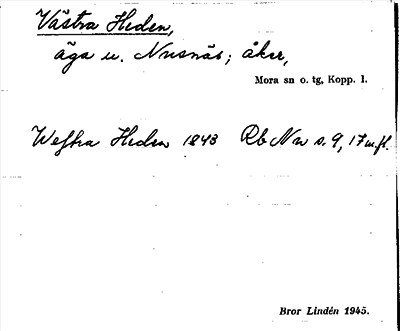 Västra Heden,
äga u. Nusnäs; åker,
Mora sn o. tg, Kopp. l.
Westra Heden 1843 Rb Nu s. 9, 17 m.fl.
Bror Lindén 1945.